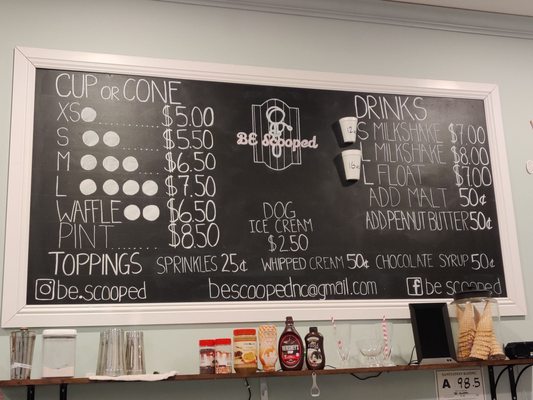 CUP or CONE
XS $5.00
S $5.50
M $6.50
L $7.50
WAFFLE $6.50
PINT $8.50
BE Scooped
DOG
ICE CREAM
$2.50
DRINKS
S MILKSHAKE $7.00
L MILKSHAKE $8.00
L FLOAT $7.00
ADD MALT 50¢
ADD PEANUT BUTTER 50¢
TOPPINGS SPRINKLES 25¢ WHIPPED CREAM 50¢ CHOCOLATE SYRUP 50¢
be.scooped
bescoopednc@gmail.com
be.scooped
HERSHEY'S
A 98.5